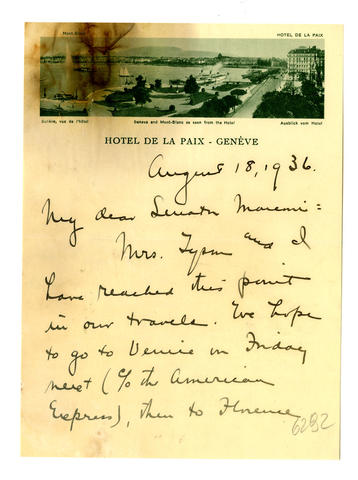 Mont-Blanc
HOTEL DE LA PAIX
vue de l'hôtel
Geneva and Mont-Blanc as seen from the Hotel
Ausblick vom Hotel
HOTEL DE LA PAIX - GENÈVE
August 18, 1936.
My dear Senator Marconi:
Mrs. Tyson and I
have reached this point
in our travels. We hope
to go to Venice on Friday
next (c/o the American
Express), then to Florence
6292